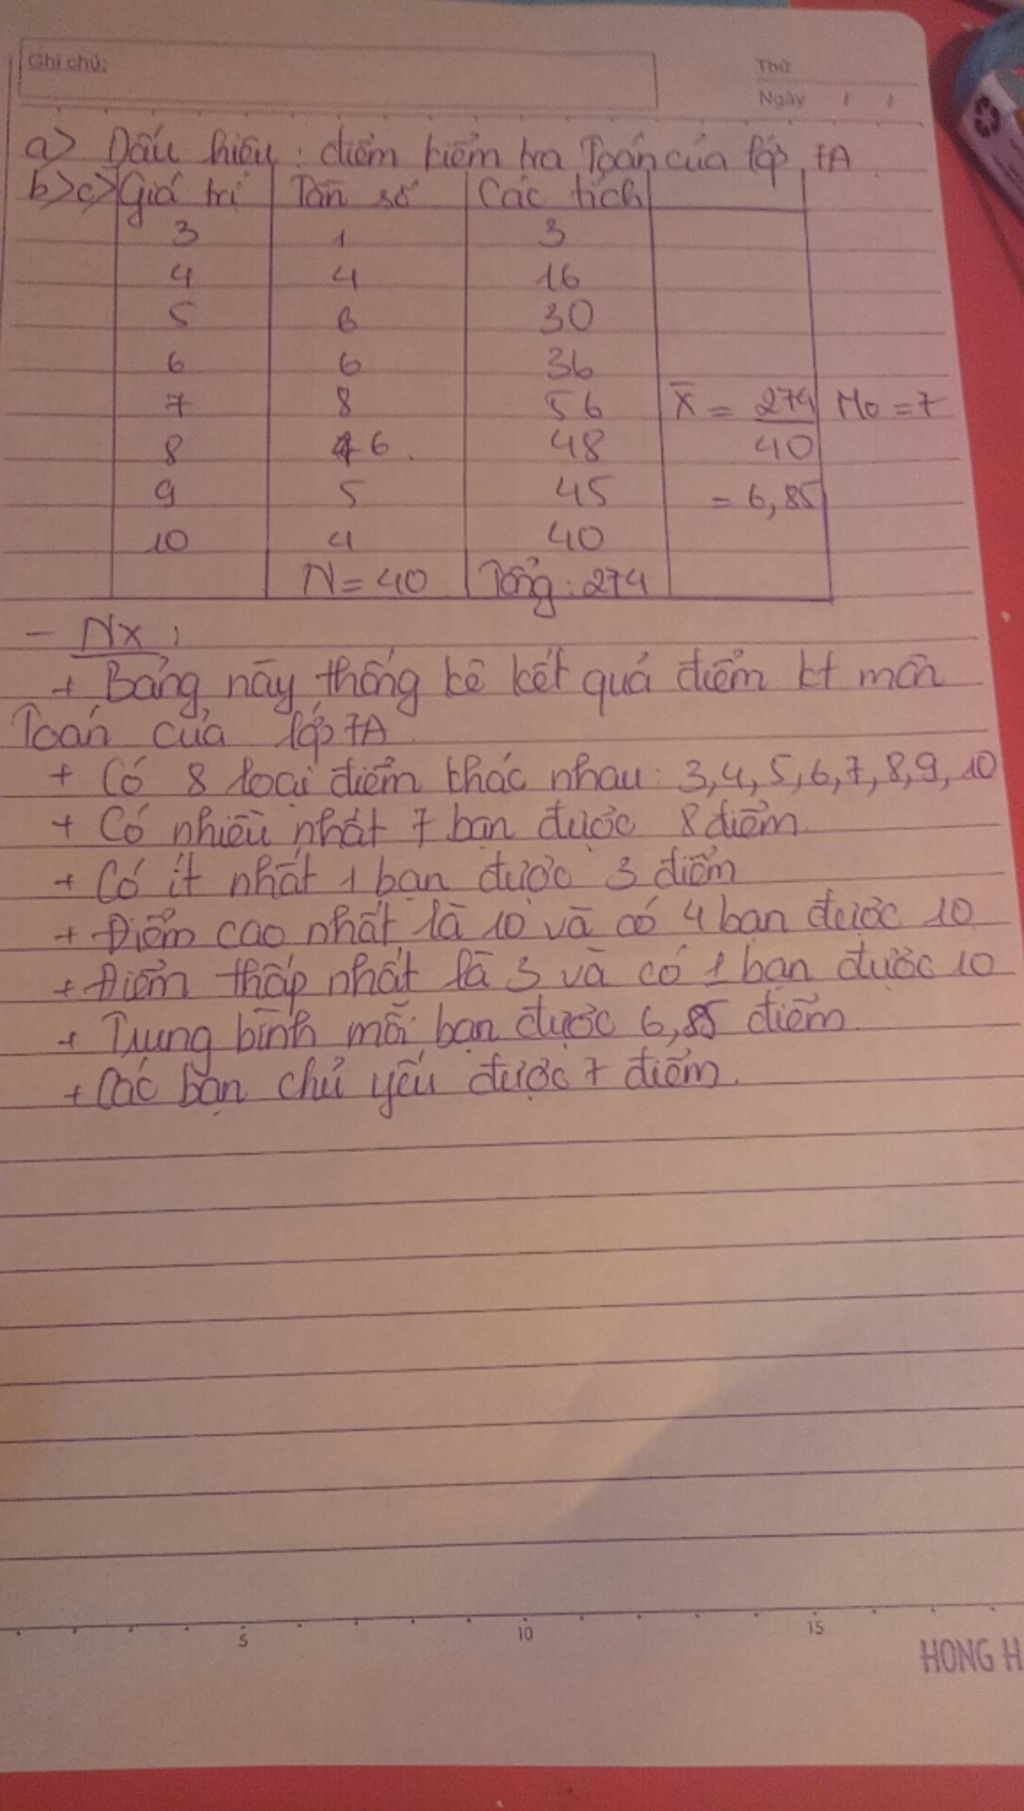 Ghi chú:
Thứ
Ngày / /
a> Dấu hiệu: điểm kiểm tra Toán của lớp 7A
b>c> Giá trị Tần số Các tích
3 1 3
4 4 16
5 6 30
6 6 36
7 8 56 X̄ = 274 Mo = 7
8 6. 48 40
9 5 45 = 6,85
10 4 40
N = 40 Tổng: 274
- Nx:
+ Bảng này thống kê kết quả điểm kt môn
Toán của lớp 7A
+ Có 8 loại điểm khác nhau: 3,4,5,6,7,8,9,10
+ Có nhiều nhất 7 bạn được 8 điểm.
+ Có ít nhất 1 bạn được 3 điểm
+ Điểm cao nhất là 10 và có 4 bạn được 10
+ Điểm thấp nhất là 3 và có 1 bạn được 10
+ Trung bình mỗi bạn được 6,85 điểm.
+ Các bạn chủ yếu được 7 điểm.
5 10 15
HONG H